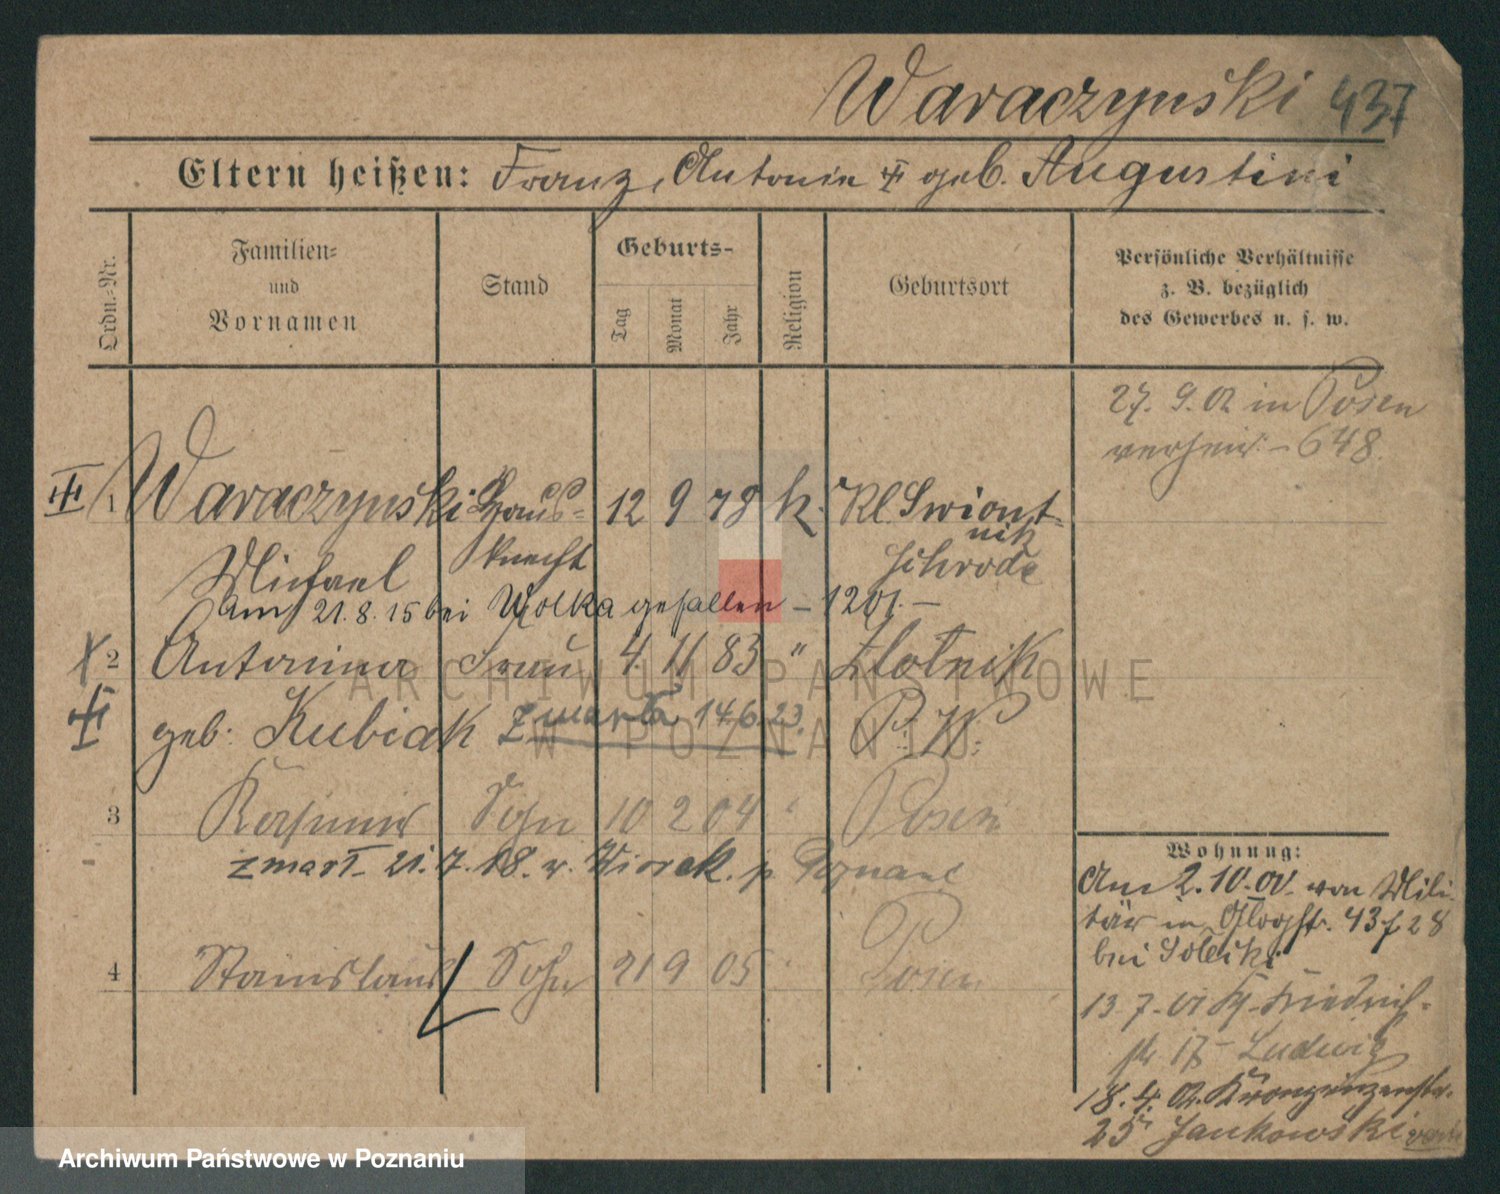 Waraczynski 437
Eltern heißen: Franz, Antonie geb. Augustini
Ordn.-Nr.
Familien-
und
Vornamen
Stand
Geburts-
Tag
Monat
Jahr
Religion
Geburtsort
Persönliche Verhältnisse
z. B. bezüglich
des Gewerbes u. s. w.
27. 9. 02 in Posen
verheir. - 648.
1 Waraczynski Haus- 12 9 78 k. Kl. Swiont-
nik
Michael knecht Schroda
Am 21.8.15 bei Wolka gefallen - 1201. -
2 Antonina Frau 4. 11 83 " Zlotnik
geb. Kubiak zmarła 14.6.23. P. W.
3 Kasimir Sohn 10 2 04 Posen
zmarł 21.7.18. w Posnani
4 Stanislaus Sohn 21 9 05 Posen
Wohnung:
Am 2. 10. 00. von Mili-
tär in Glogstr. 43 f 28
bei
13. 7. 01 Friedrich-
str 17 Ludwig
18. 4. 02. Kronprinzenstr.
25 Jankowski
ARCHIWUM PAŃSTWOWE
W POZNANIU
Archiwum Państwowe w Poznaniu